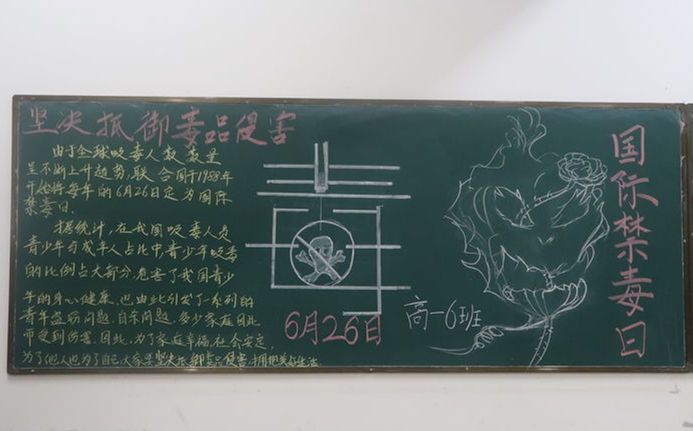 坚决抵御毒品侵害
由于全球吸毒人数数量
呈不断上升趋势,联合国于1988年
开始将每年的6月26日定为国际
禁毒日。
据统计,在我国吸毒人员
青少年与成年人占比中,青少年吸毒
的比例占大部分,危害了我国青少
年的身心健康,也由此引发了一系列的
青年盗窃问题,自杀问题,多少家庭因此
而受到伤害。因此,为了家庭幸福,社会安定,
为了他人也为了自己,大家要坚决抵御毒品侵害,拥抱美好生活
毒
6月26日
高一6班
国际禁毒日